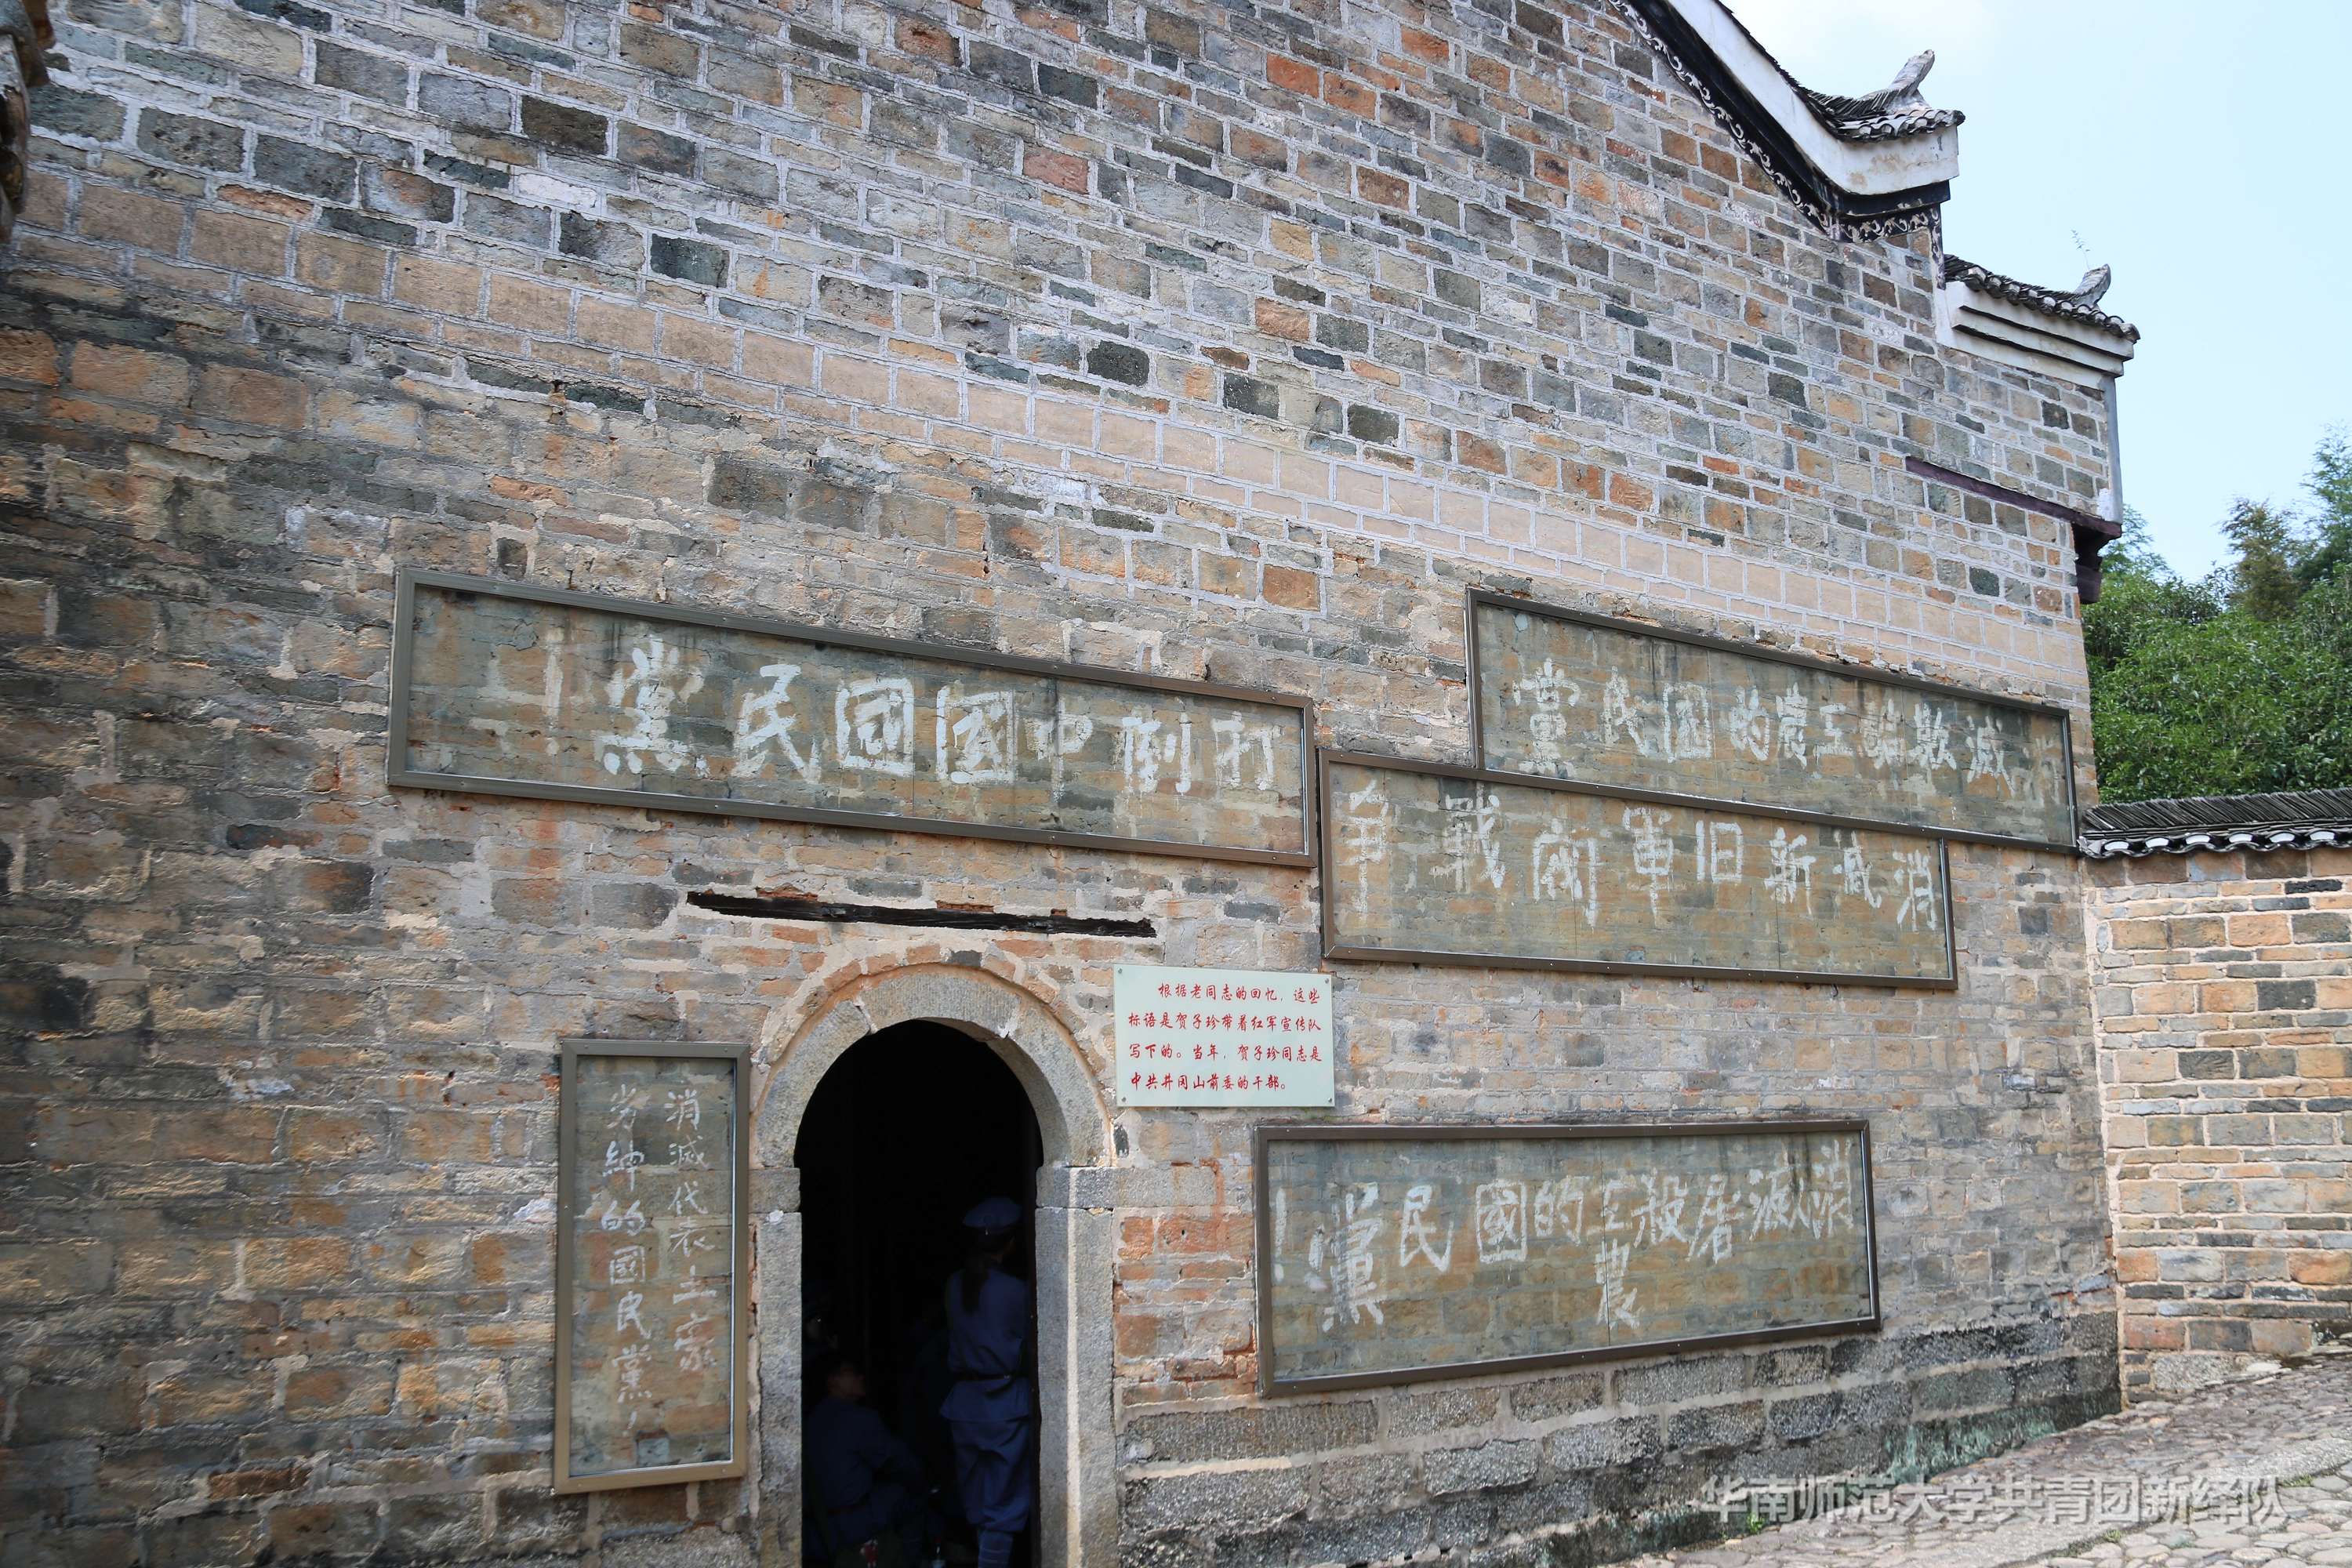 打倒中國國民黨
消滅欺騙工農的国民黨
消滅新旧軍閥战争
根据老同志的回忆，这些
标语是贺子珍带着红军宣传队
写下的。当年，贺子珍同志是
中共井冈山前委的干部。
消滅代表土豪
劣紳的國民黨！
消滅屠殺工農的國民黨！
华南师范大学共青团新绎队